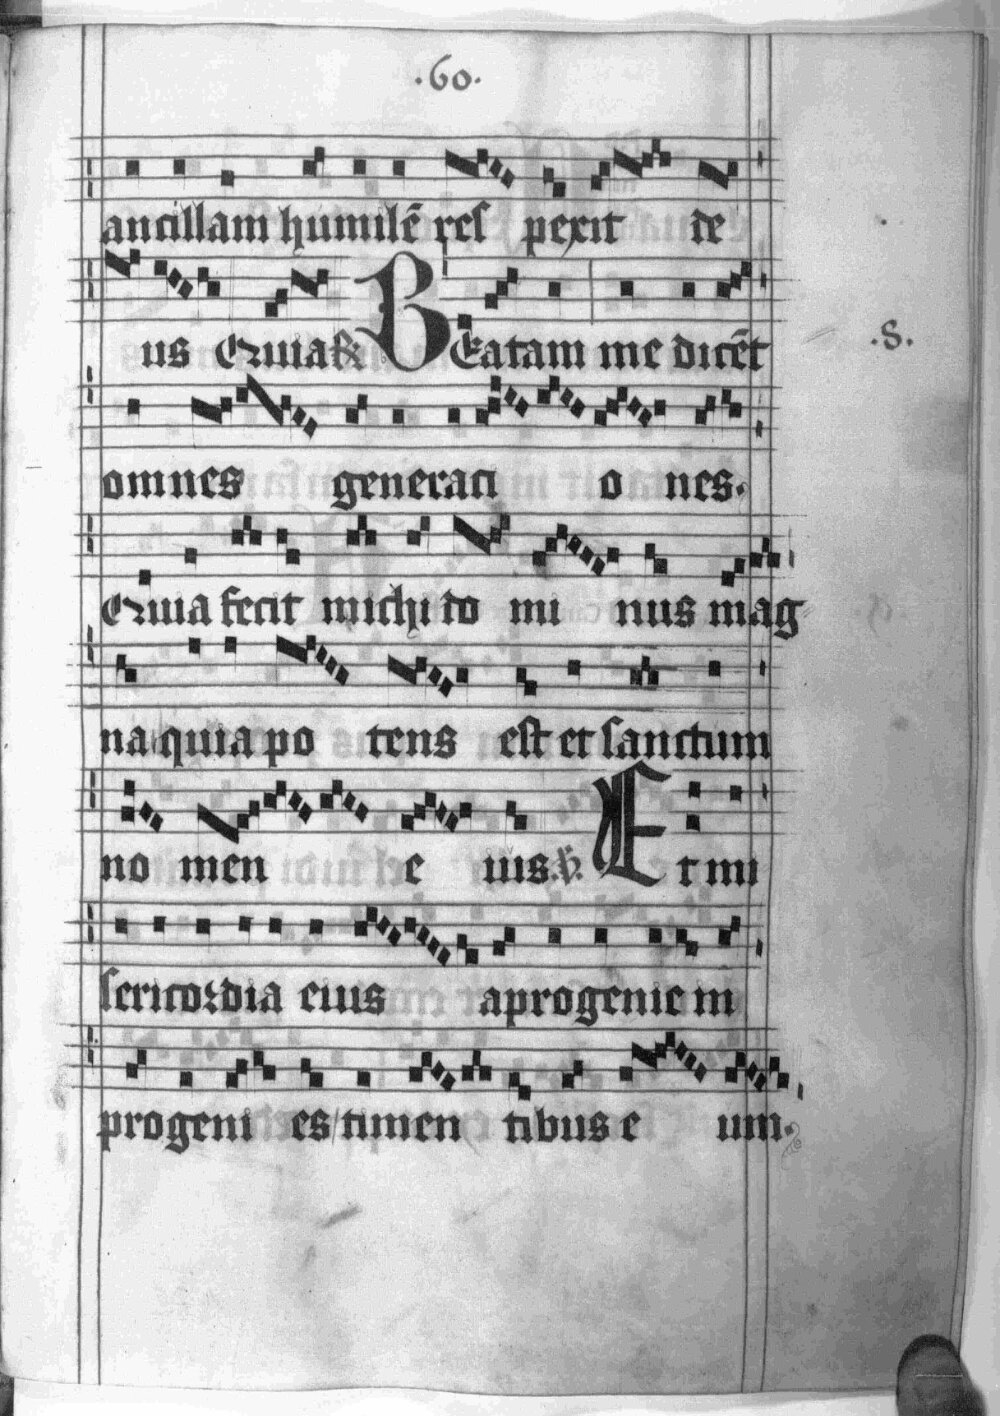 .60.
ancillam humilẽ res pexit de
us Quia & Beatam me dicẽt
.8.
omnes generaci o nes.
Quia fecit michi do mi nus mag
na quia po tens est et sanctum
no men e ius. ℣. Et mi
sericordia eius a progenie in
progeni es timen tibus e um.